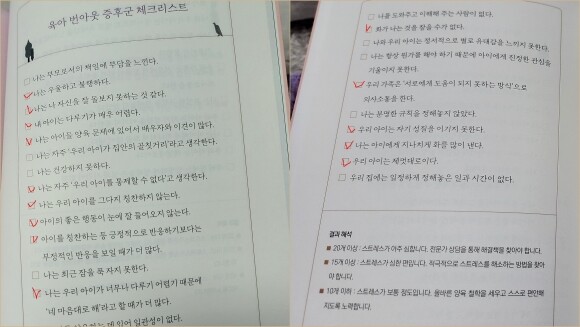 육아 번아웃 증후군 체크리스트
□ 나는 부모로서의 책임에 부담을 느낀다.
□ 나는 우울하고 불행하다.
□ 나는 나 자신을 잘 돌보지 못하는 것 같다.
□ 내 아이는 다루기가 매우 어렵다.
□ 나는 아이를 양육 문제에 있어서 배우자와 이견이 많다.
□ 나는 자주 '우리 아이가 집안의 골칫거리'라고 생각한다.
□ 나는 건강하지 못하다.
□ 나는 자주 '우리 아이를 통제할 수 없다'고 생각한다.
□ 나는 우리 아이를 그다지 칭찬하지 않는다.
□ 아이의 좋은 행동이 눈에 잘 들어오지 않는다.
□ 아이를 칭찬하는 등 긍정적으로 반응하기보다는
부정적인 반응을 보일 때가 더 많다.
□ 나는 최근 잠을 푹 자지 못한다.
□ 나는 우리 아이가 너무나 다루기 어렵기 때문에
'네 마음대로 해'라고 할 때가 더 많다.
데 있어 일관성이 없다.
□ 나를 도와주고 이해해 주는 사람이 없다.
□ 화가 나는 것을 참을 수가 없다.
□ 나와 우리 아이는 정서적으로 별로 유대감을 느끼지 못한다.
□ 나는 항상 뭔가를 해야 하기 때문에 아이에게 진정한 관심을
기울이지 못한다.
□ 우리 가족은 '서로에게 도움이 되지 못하는 방식'으로
의사소통을 한다.
□ 나는 분명한 규칙을 정해놓지 않았다.
□ 우리 아이는 자기 성질을 이기지 못한다.
□ 나는 아이에게 지나치게 화를 많이 낸다.
□ 우리 아이는 제멋대로이다.
□ 우리 집에는 일정하게 정해놓은 일과 시간이 없다.
결과 해석
■ 20개 이상 : 스트레스가 아주 심합니다. 전문가 상담을 통해 해결책을 찾아야 합니다.
■ 15개 이상 : 스트레스가 심한 편입니다. 적극적으로 스트레스를 해소하는 방법을 찾아
야 합니다.
■ 10개 이하 : 스트레스가 보통 정도입니다. 올바른 양육 철학을 세우고 스스로 편안해
지도록 노력합니다.